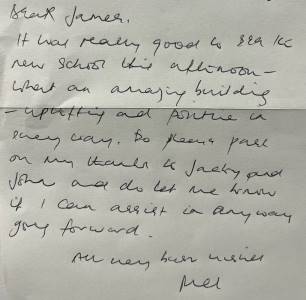 Dear James,
It was really good to see the
new school this afternoon –
what an amazing building
– uplifting and positive in
every way. Do please pass
on my thanks to Jacky and
John and do let me know
if I can assist in anyway
going forward.
All very best wishes
Mel